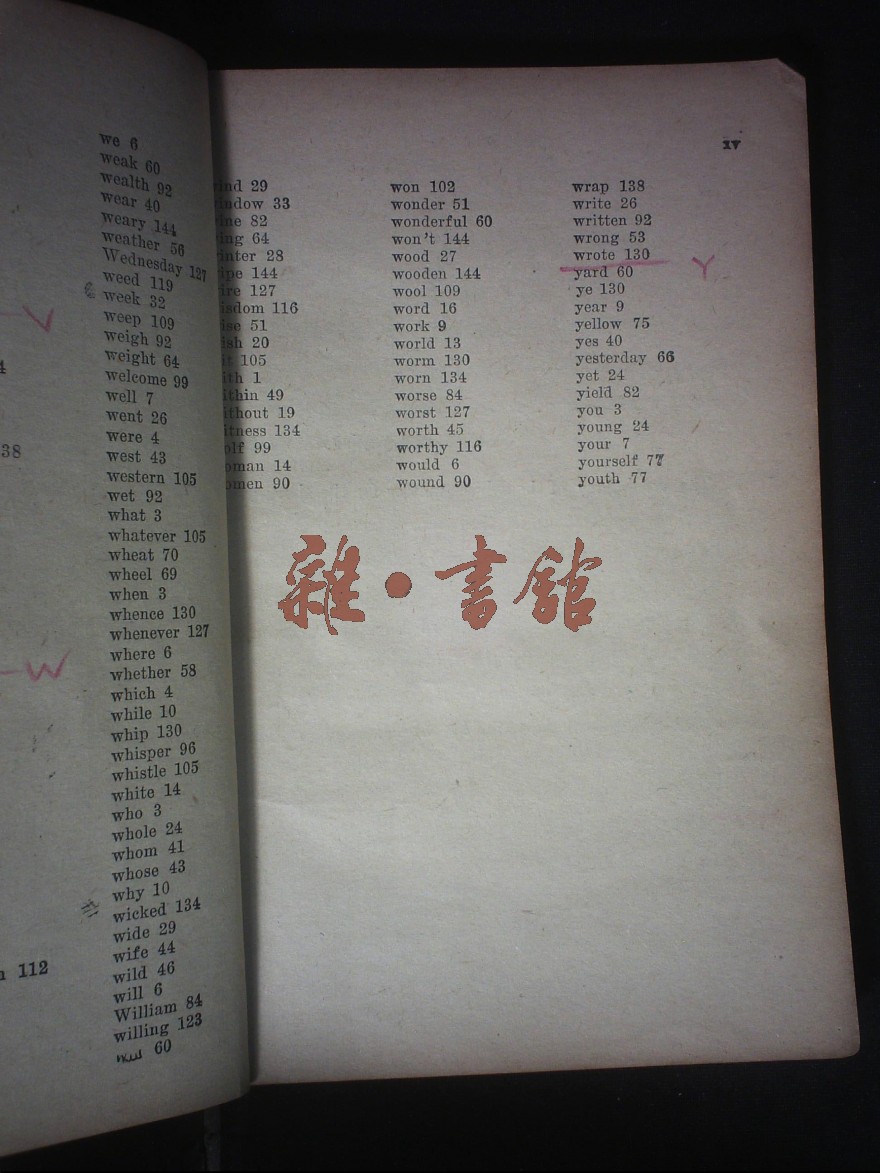 we 6
weak 60
wealth 92
wear 40
weary 144
weather 56
Wednesday 127
weed 119
week 32
weep 109
weigh 92
weight 64
welcome 99
well 7
went 26
were 4
west 43
western 105
wet 92
what 3
whatever 105
wheat 70
wheel 69
when 3
whence 130
whenever 127
where 6
whether 58
which 4
while 10
whip 130
whisper 96
whistle 105
white 14
who 3
whole 24
whom 41
whose 43
why 10
wicked 134
wide 29
wife 44
wild 46
will 6
William 84
willing 123
60
V
W
38
112
xv
29
33
82
64
28
144
127
116
51
20
105
1
49
19
134
99
14
90
won 102
wonder 51
wonderful 60
won't 144
wood 27
wooden 144
wool 109
word 16
work 9
world 13
worm 130
worn 134
worse 84
worst 127
worth 45
worthy 116
would 6
wound 90
wrap 138
write 26
written 92
wrong 53
wrote 130
Y
yard 60
ye 130
year 9
yellow 75
yes 40
yesterday 66
yet 24
yield 82
you 3
young 24
your 7
yourself 77
youth 77
雜·書館